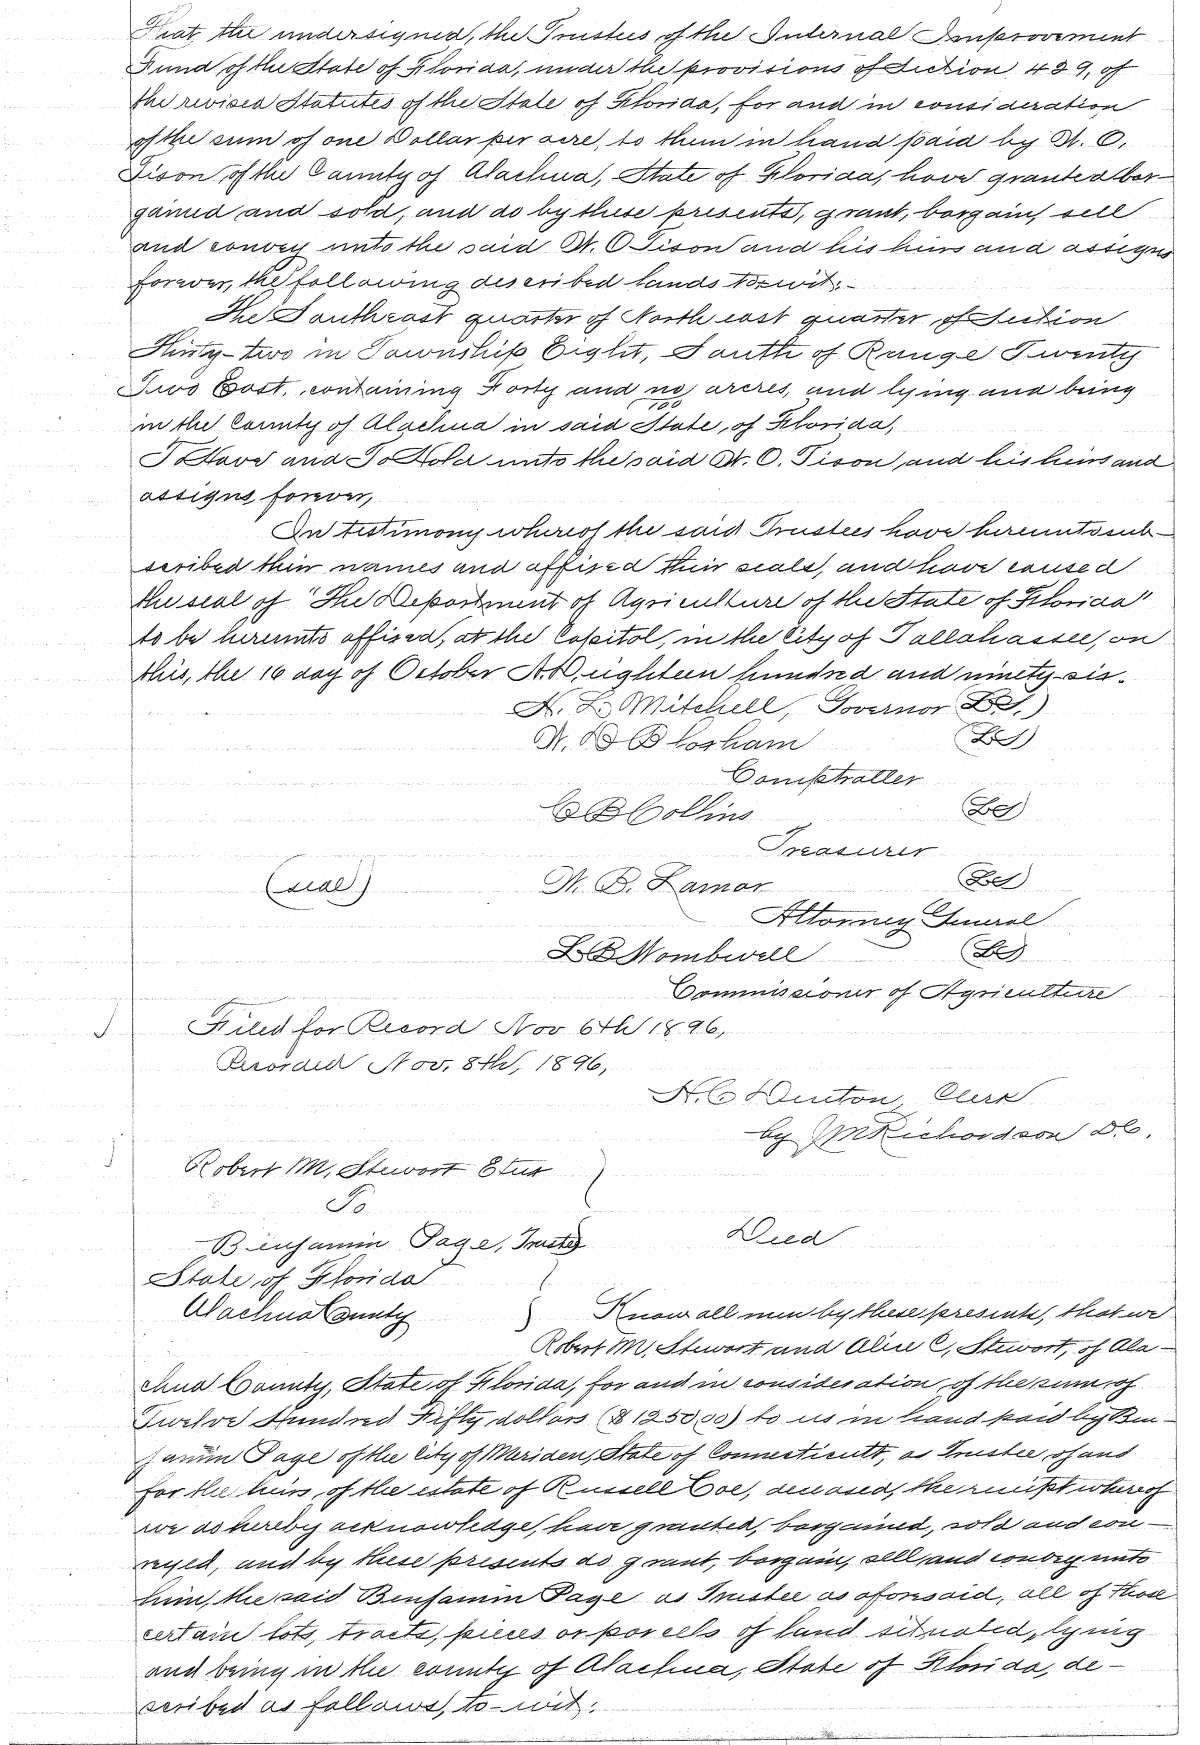 That, the undersigned, the Trustees of the Internal Improvement
Fund of the State of Florida, under the provisions of Section 429, of
the revised Statutes of the State of Florida, for and in consideration
of the sum of one Dollar per acre, to them in hand paid by W. O.
Tison, of the County of Alachua, State of Florida, have granted bar-
gained and sold, and do by these presents, grant, bargain, sell
and convey unto the said W. O Tison and his heirs and assigns
forever, the following described lands to-wit:-
The Southeast quarter of North east quarter of Section
Thirty-two in Township Eight, South of Range Twenty
Two East, containing Forty and no/100 arcres, and lying and being
in the County of Alachua in said State, of Florida,
To Have and To Hold unto the said W. O. Tison, and his heirs and
assigns forever,
In testimony whereof the said Trustees have hereunto sub-
scribed their names and affixed their seals, and have caused
the seal of "The Department of Agriculture of the State of Florida"
to be hereunto affixed, at the Capitol, in the City of Tallahassee, on
this, the 16 day of October A.D. eighteen hundred and ninety-six.
H. L. Mitchell, Governor (L.S.)
W. D Bloxham (LS)
Comptroller
C B Collins (LS)
Treasurer
(seal) W. B. Lamar (LS)
Attorney General
L B Wombwell (LS)
Commissioner of Agriculture
Filed for Record Nov 6th 1896,
Recorded Nov. 8th, 1896,
H. C Denton, Clerk
by J M Richardson D.C.
Robert M. Stewart Etux
To
Benjamin Page, Trustee Deed
State of Florida
Alachua County Know all men by these presents, that we
Robert M. Stewart and Alice C, Stewart, of Ala-
chua County, State of Florida, for and in consideration of the sum of
Twelve Hundred Fifty dollars ($1250.00) to us in hand paid by Ben-
jamin Page of the City of Meriden, State of Connecticutt, as Trustee, of and
for the heirs, of the estate of Russell Coe, deceased, the receipt whereof
we do hereby acknowledge, have granted, bargained, sold and con-
veyed, and by these presents do grant, bargain, sell and convey unto
him, the said Benjamin Page as Trustee as aforesaid, all of those
certain lots, tracts, pieces or parcels of land situated, lying
and being in the county of Alachua, State of Florida, de-
scribed as follows, to-wit: